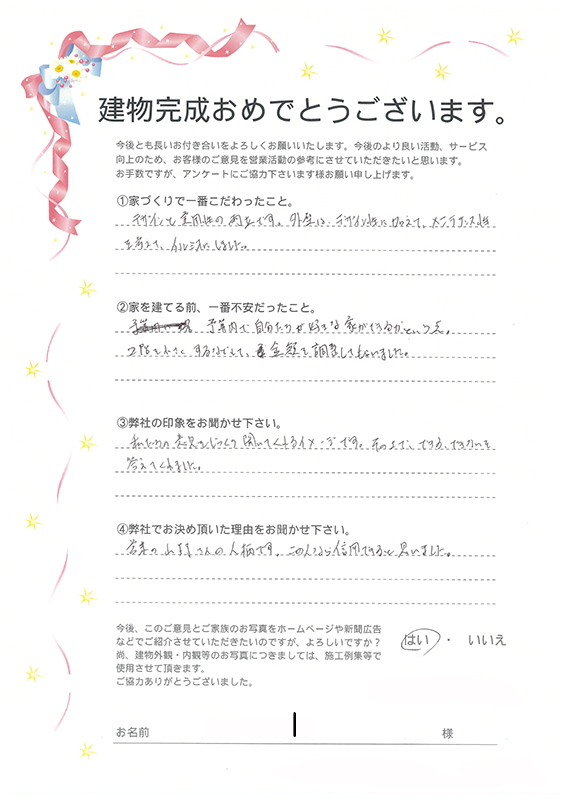 建物完成おめでとうございます。
今後とも長いお付き合いをよろしくお願いいたします。今後のより良い活動、サービス
向上のため、お客様のご意見を営業活動の参考にさせていただきたいと思います。
お手数ですが、アンケートにご協力下さいます様お願い申し上げます。
①家づくりで一番こだわったこと。
デザインと実用性の両立です。外壁は、デザイン性に加えて、メンテナンス性
を考えて、にしました。
②家を建てる前、一番不安だったこと。
予算内で自分たちが好きな家ができるかという点。
2階を小さくするなどして、金額を調整してもらいました。
③弊社の印象をお聞かせ下さい。
私たちの意見をじっくり聞いてくれるイメージです。その上で、できる、できないを
答えてくれました。
④弊社でお決め頂いた理由をお聞かせ下さい。
営業の さんの人柄です。この人なら信用できると思いました。
今後、このご意見とご家族のお写真をホームページや新聞広告
などでご紹介させていただきたいのですが、よろしいですか? はい ・ いいえ
尚、建物外観・内観等のお写真につきましては、施工例集等で
使用させて頂きます。
ご協力ありがとうございました。
お名前 様